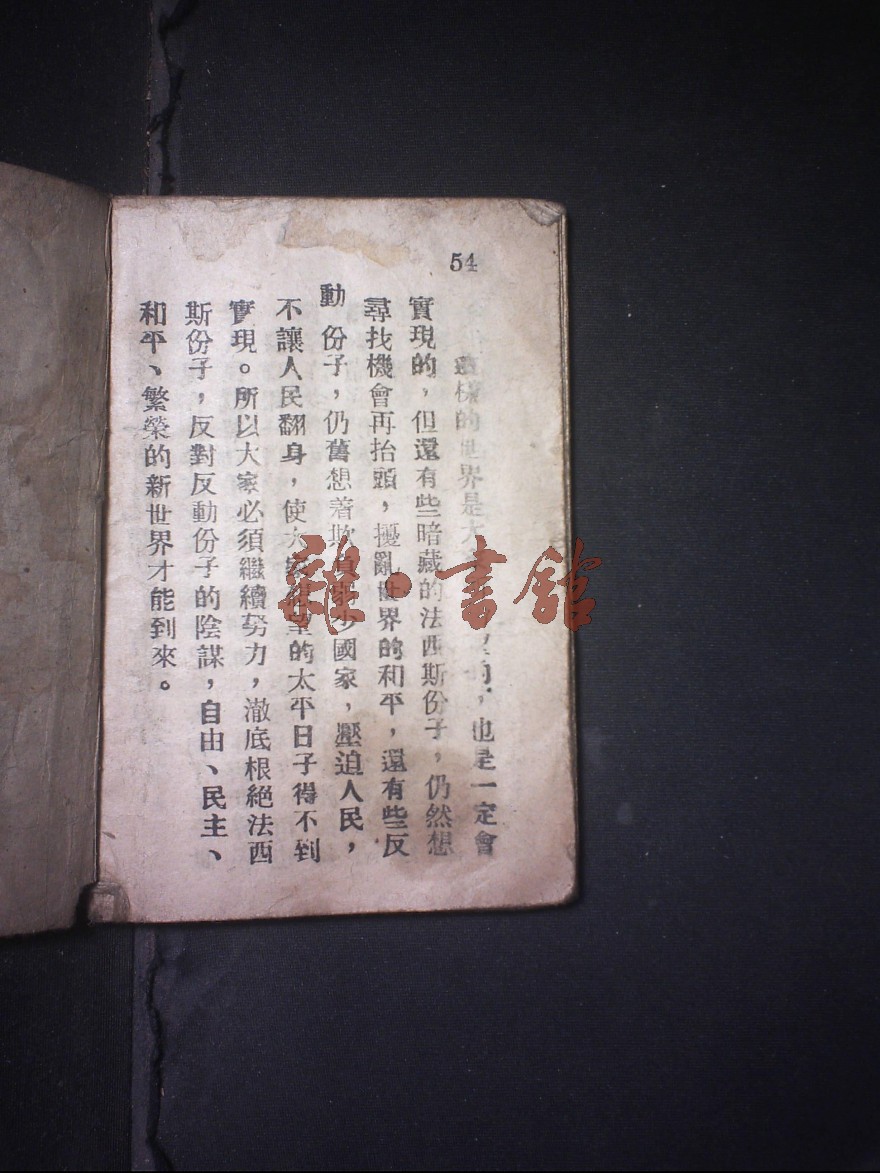 54
這樣的世界是大的，也是一定會
實現的，但還有些暗藏的法西斯份子，仍然想
尋找機會再抬頭，擾亂世界的和平，還有些反
動份子，仍舊想着欺國家，壓迫人民，
不讓人民翻身，使大家的太平日子得不到
實現。所以大家必須繼續努力，澈底根絕法西
斯份子，反對反動份子的陰謀，自由、民主、
和平、繁榮的新世界才能到來。
雜·書館